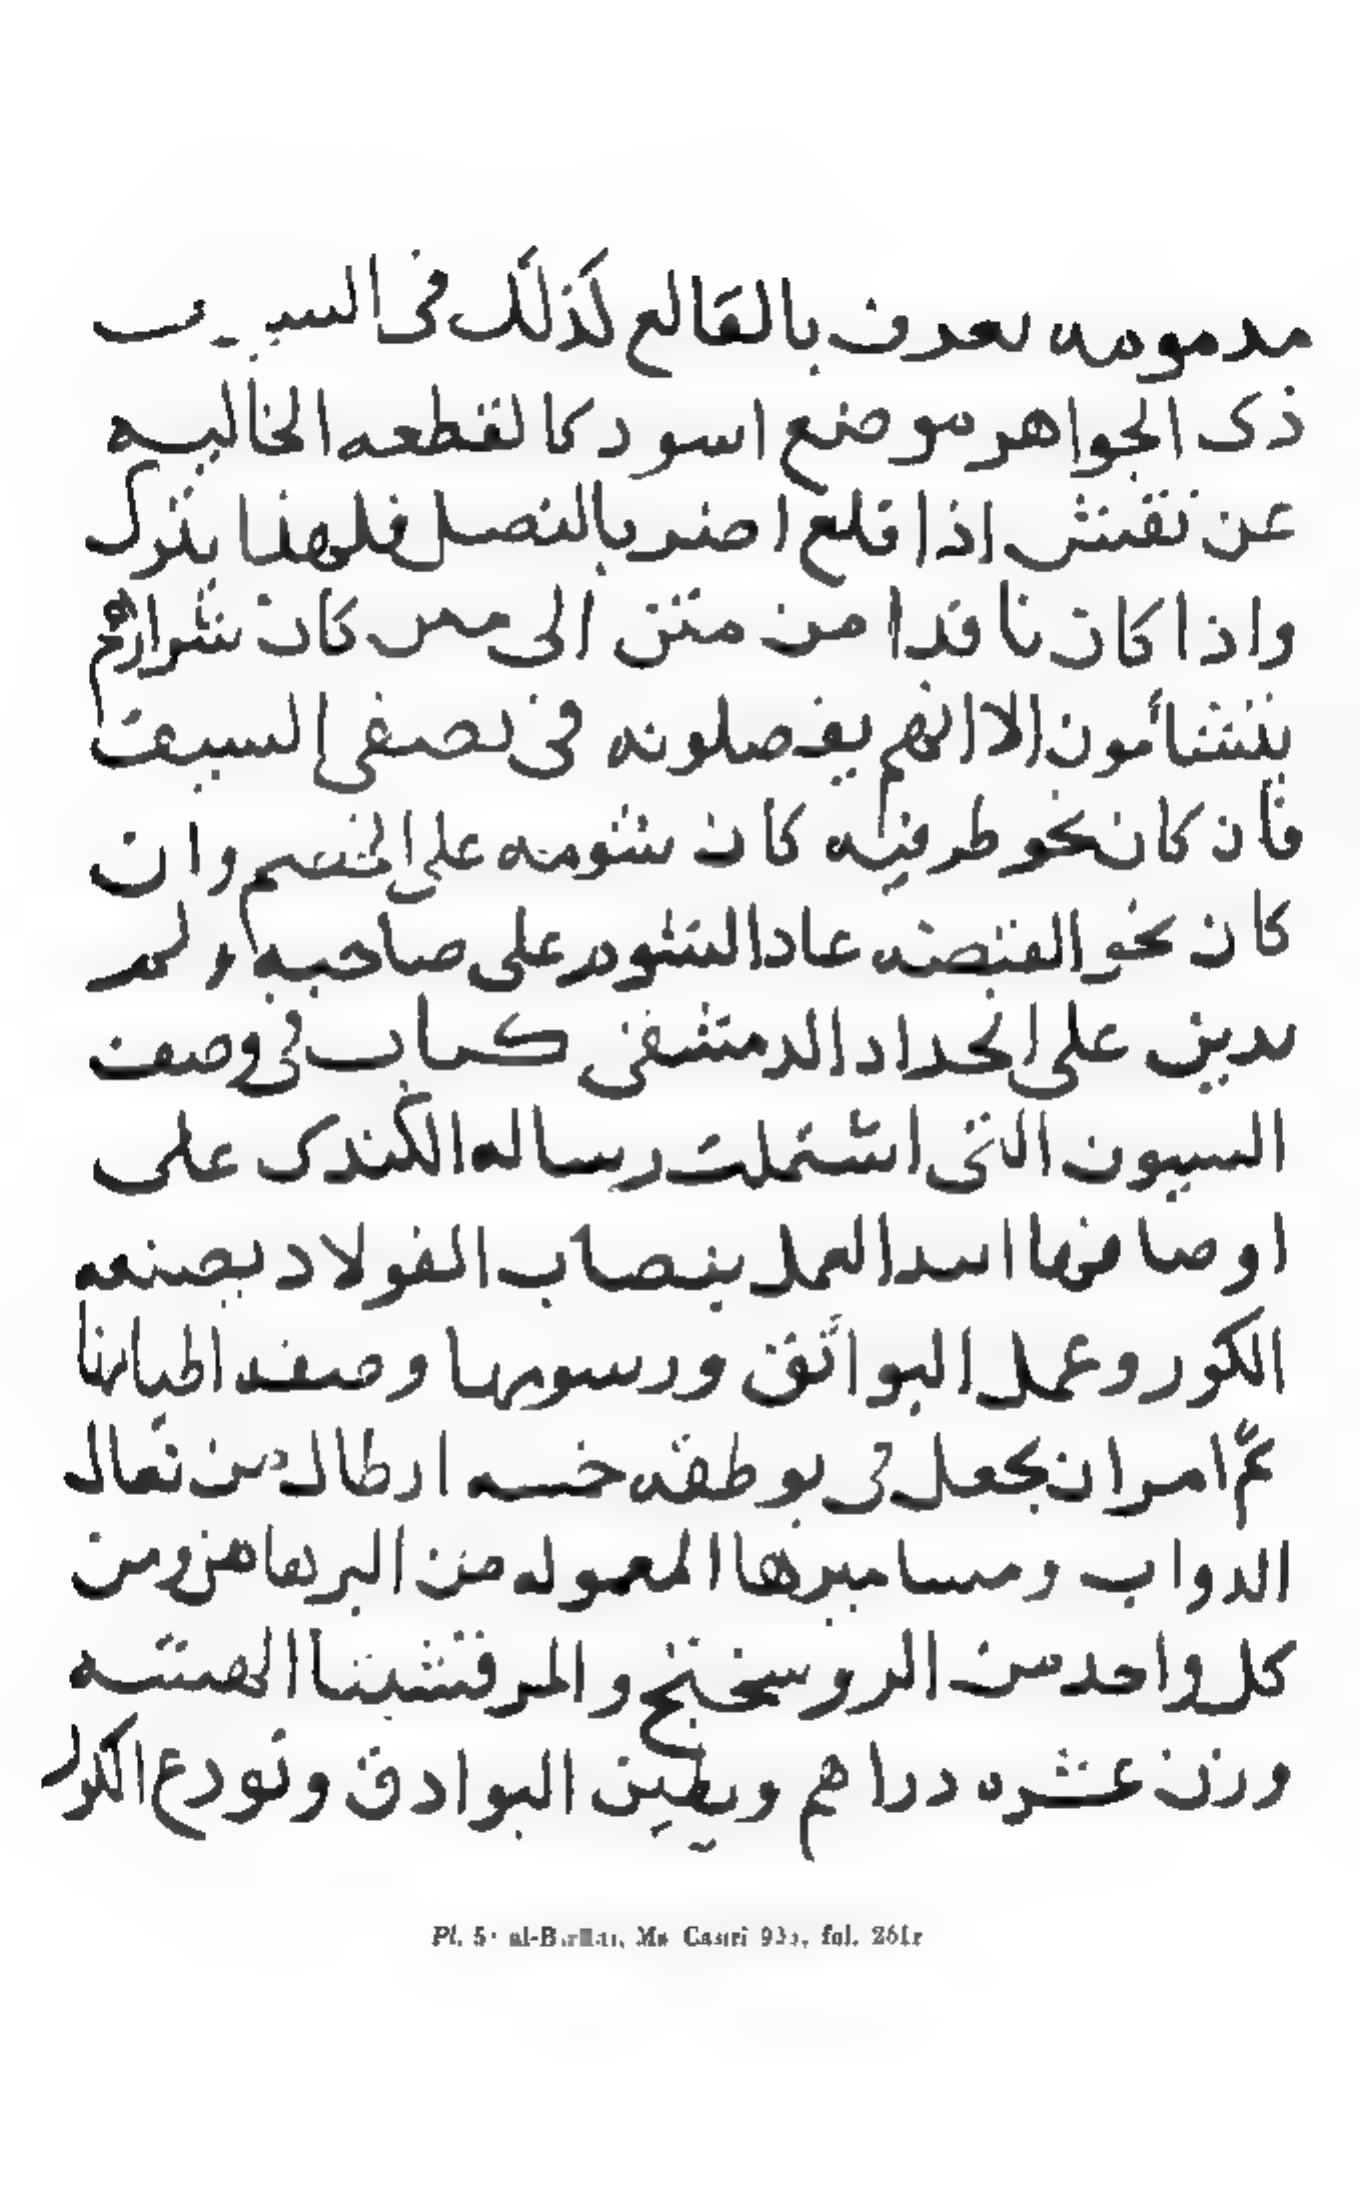 مدمومه تعرف بالقالع كذلك في السيف
ذى الجواهر موضع اسود كالقطعه الخاليه
عن نقش اذا قلع اضر بالنصل فلهذا يترك
واذا كان نافدا من متن الى متن كان شرا وهم
يتشأمون الا انهم يفصلونه في نصفى السيف
فان كان نحو طرفيه كان شومه على الخصم وان
كان نحو القبضه عاد الشوم على صاحبه ولمز
يد بن على الحداد الدمشقى كتاب في وصف
السيوف التى اشتملت رساله الكندى على
اوصافها ابتدا العمل بنصاب الفولاد بصنعه
الكور وعمل البواتق ورسومها وصفه اطيانها
ثم امر ان يجعل في بوطقه خمسه ارطال من نعال
الدواب ومساميرها المعموله من النرماهن ومن
كل واحد من الروسختج والمرقشيثا الهشه
وزن عشره دراهم ويطين البوادق وتودع الكور
Pl. 5 al-Biruni, Ms. Casiri 905, fol. 261r